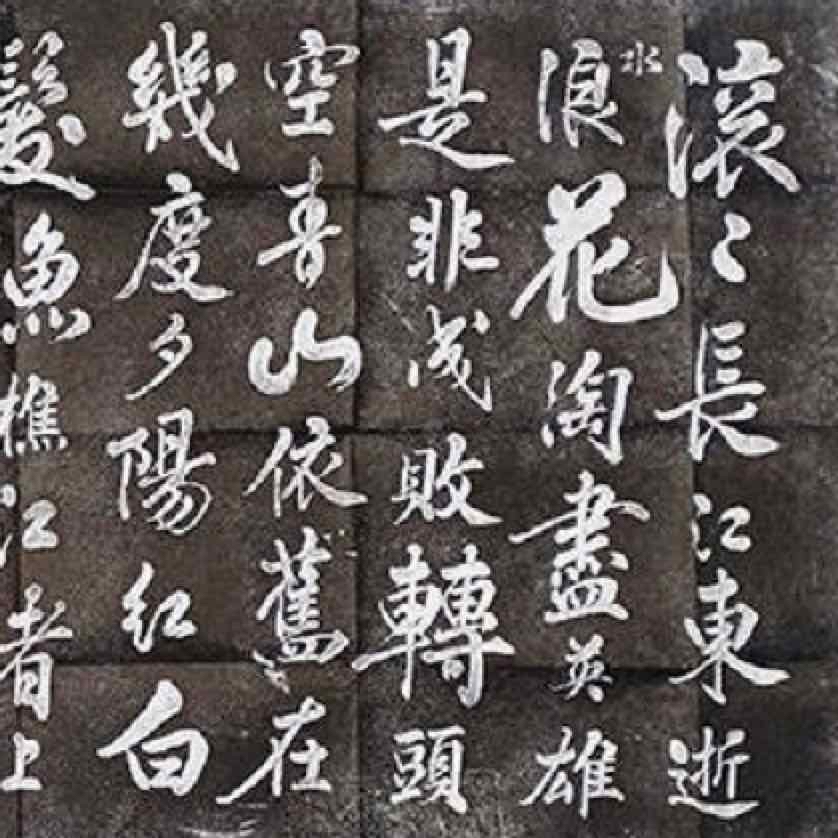 滚〻長江東逝
水浪花淘盡英雄
是非成敗轉頭
空青山依舊在
幾度夕陽紅白
髮魚樵江者上